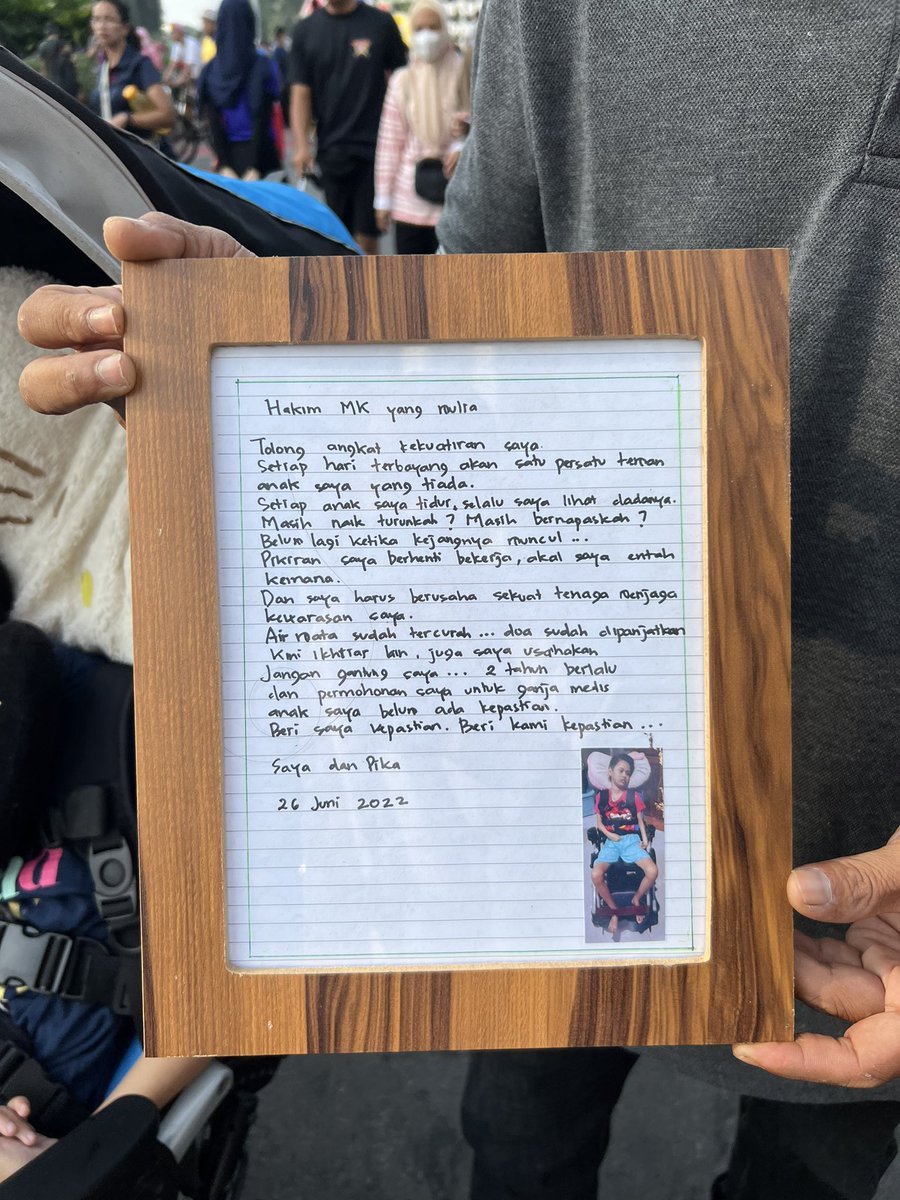 Hakim MK yang mulia
Tolong angkat kekuatiran saya.
Setiap hari terbayang akan satu persatu teman
anak saya yang tiada.
Setiap anak saya tidur, selalu saya lihat dadanya.
Masih naik turunkah? Masih bernapaskah?
Belum lagi ketika kejangnya muncul...
Pikiran saya berhenti bekerja, akal saya entah
kemana.
Dan saya harus berusaha sekuat tenaga menjaga
kewarasan saya.
Air mata sudah tercurah... doa sudah dipanjatkan
Kini ikhtiar lain, juga saya usahakan
Jangan gantung saya... 2 tahun berlalu
dan permohonan saya untuk ganja medis
anak saya belum ada kepastian.
Beri saya kepastian. Beri kami kepastian...
Saya dan Pika
26 Juni 2022